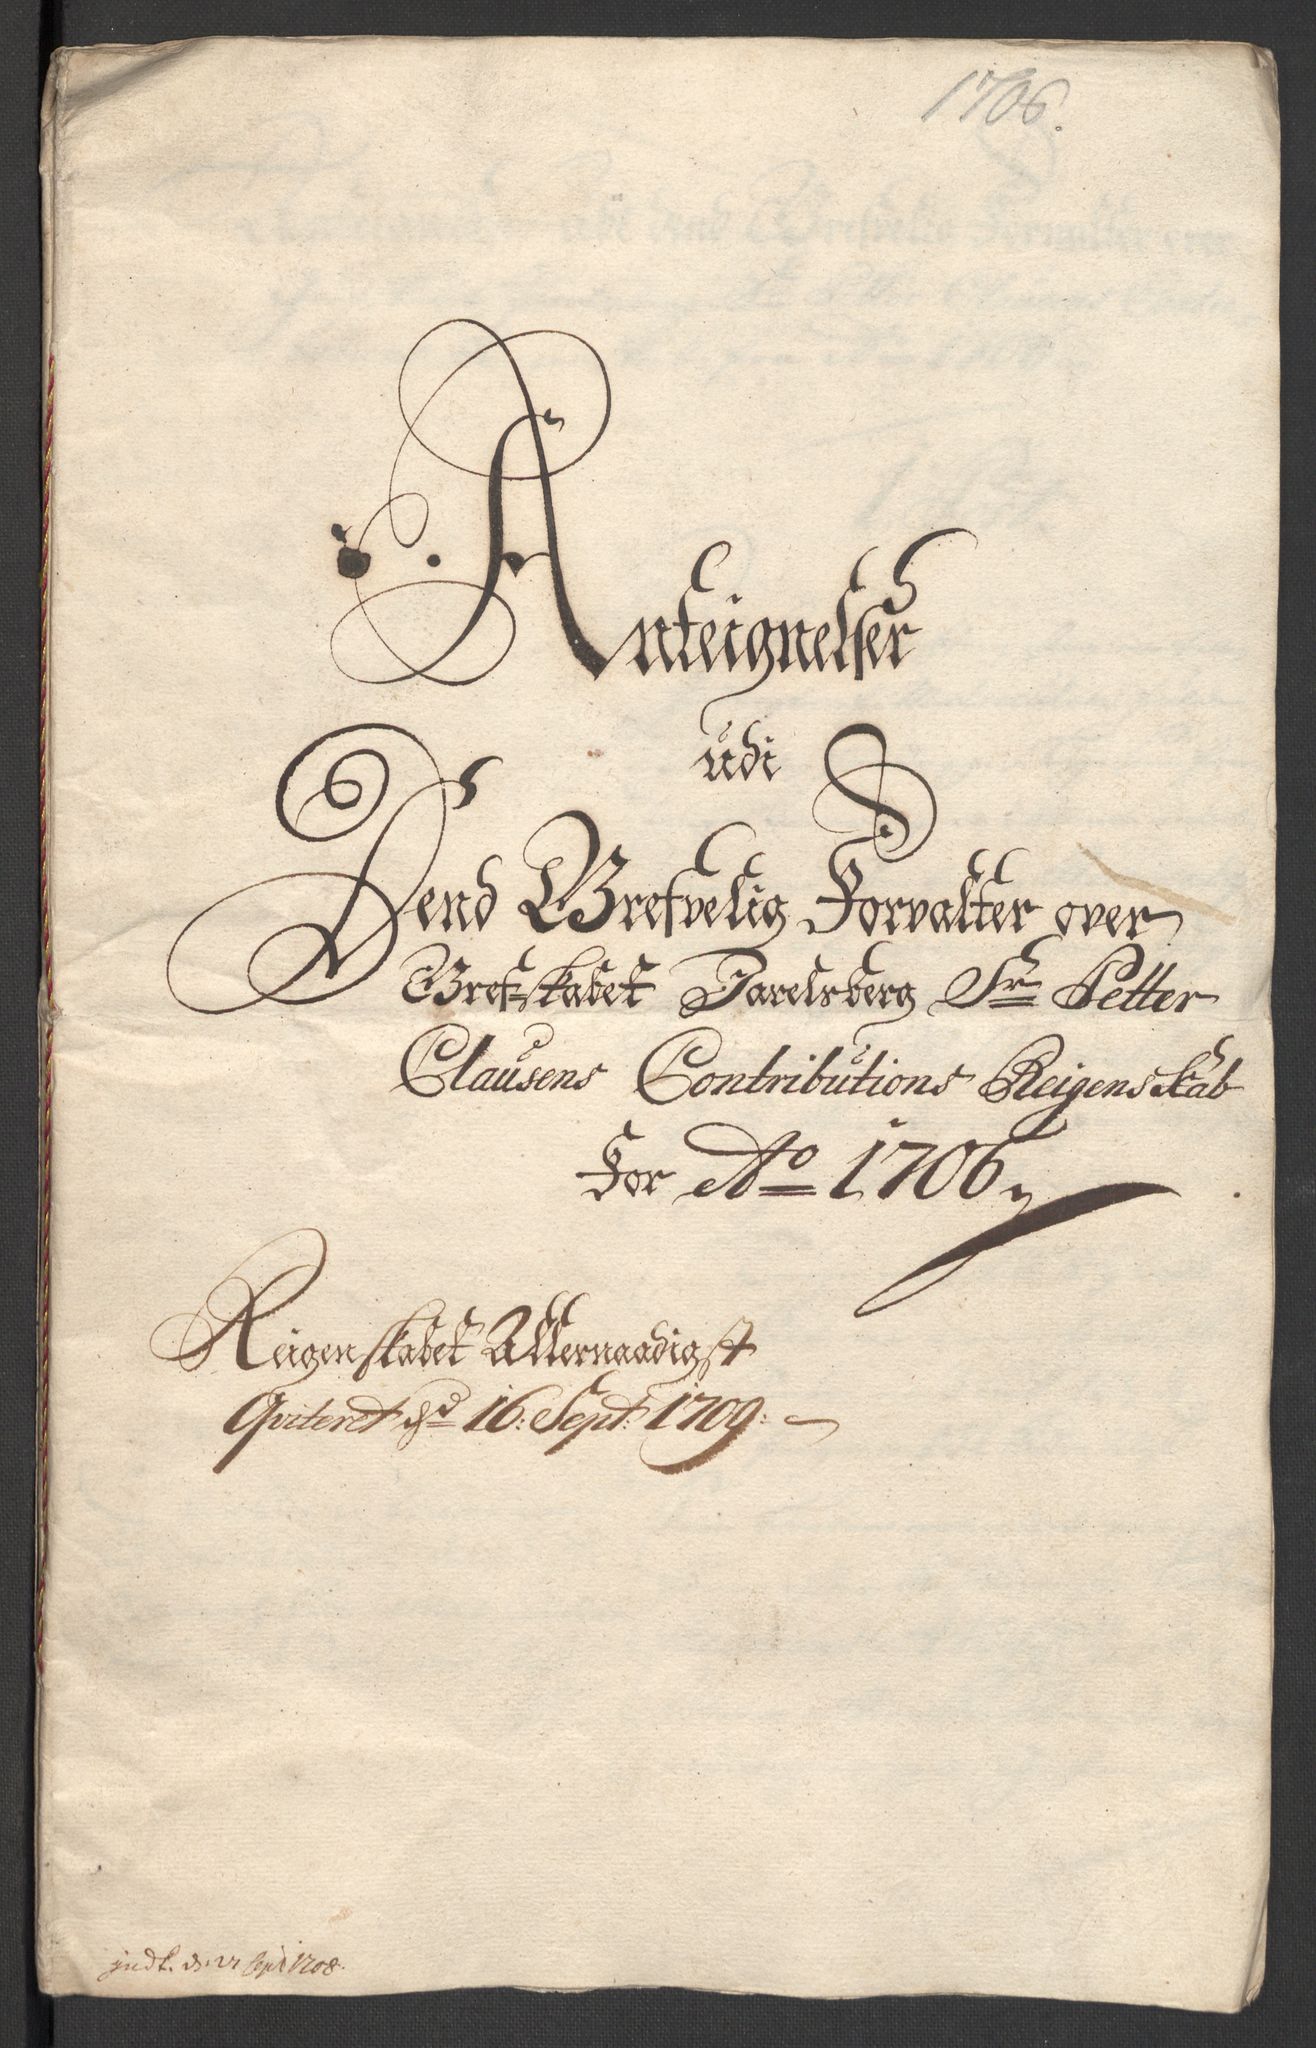 1706.
Anteignelser
udi
Dend Grefvelig Forvalter over
Grefskabet Jarelsberg Sr Petter
Clausens Contributions Reigenskab
For Ao 1706
Reigenskabet Allernaadigst
Qviteret dend 16: Sept: 1709:
indk. d: Sept 1708.